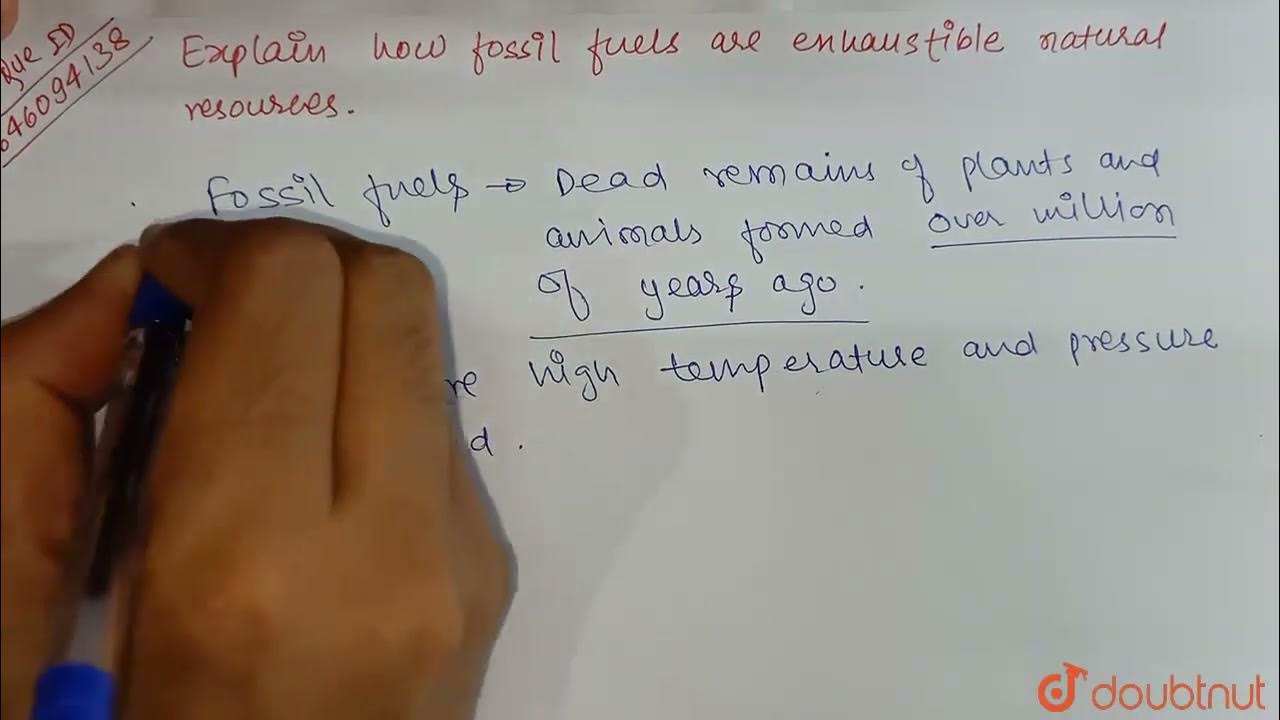 Que ID
646094138
Explain how fossil fuels are exhaustible natural
resources.
Fossil fuels → Dead remains of plants and
animals formed over million
of years ago.
high temperature and pressure
doubtnut